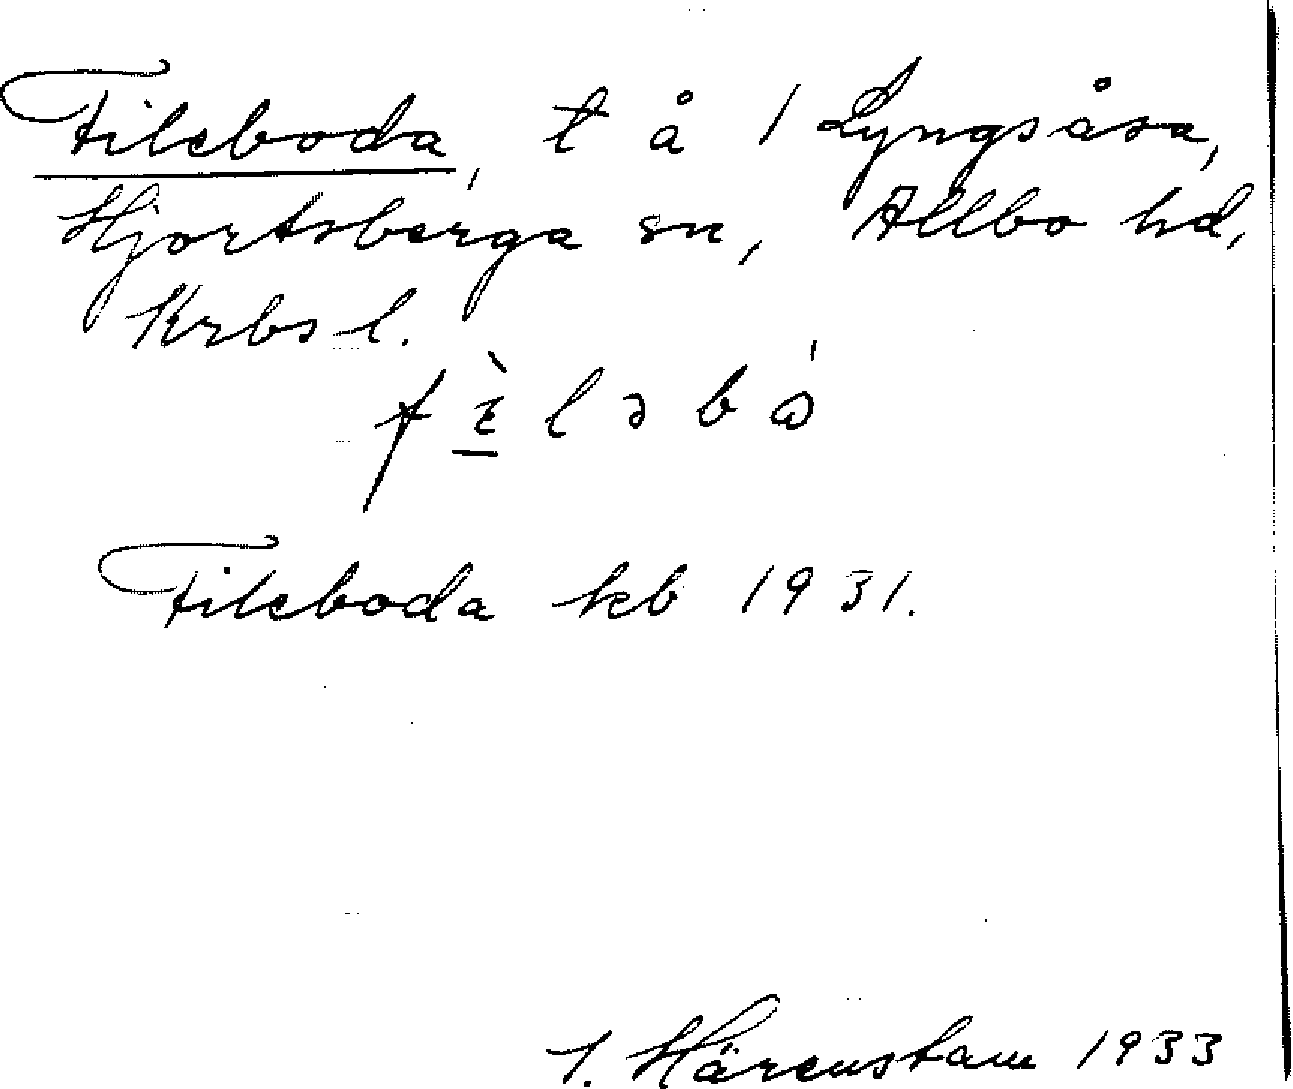 Fileboda, t å 1 Lyngsåsa,
Hjortsberga sn, Allbo hd,
Krbs l.
fìləbó
Fileboda kb 1931.
I. Härenstam 1933